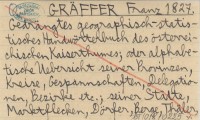 GRÄFFER Franz, 1827.
Gedrängtes geographisch-statis-
tisches Handwörterbuch des österrei-
chischen Kaiserthumes; oder alphabe-
tische Uebersicht seiner Provinzen,
Kreise, Gespannschaften, Delegatio-
nen, Bezirke etc.; seiner Städte,
Marktflecken, Dörfer, Berge, Thäler